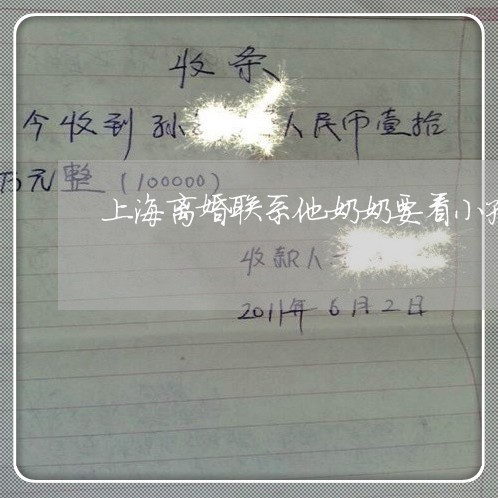 收条
今收到孙 人民币壹拾
万元整(100000)
上海离婚联系他奶奶要看小孩
收款人
2011年6月2日